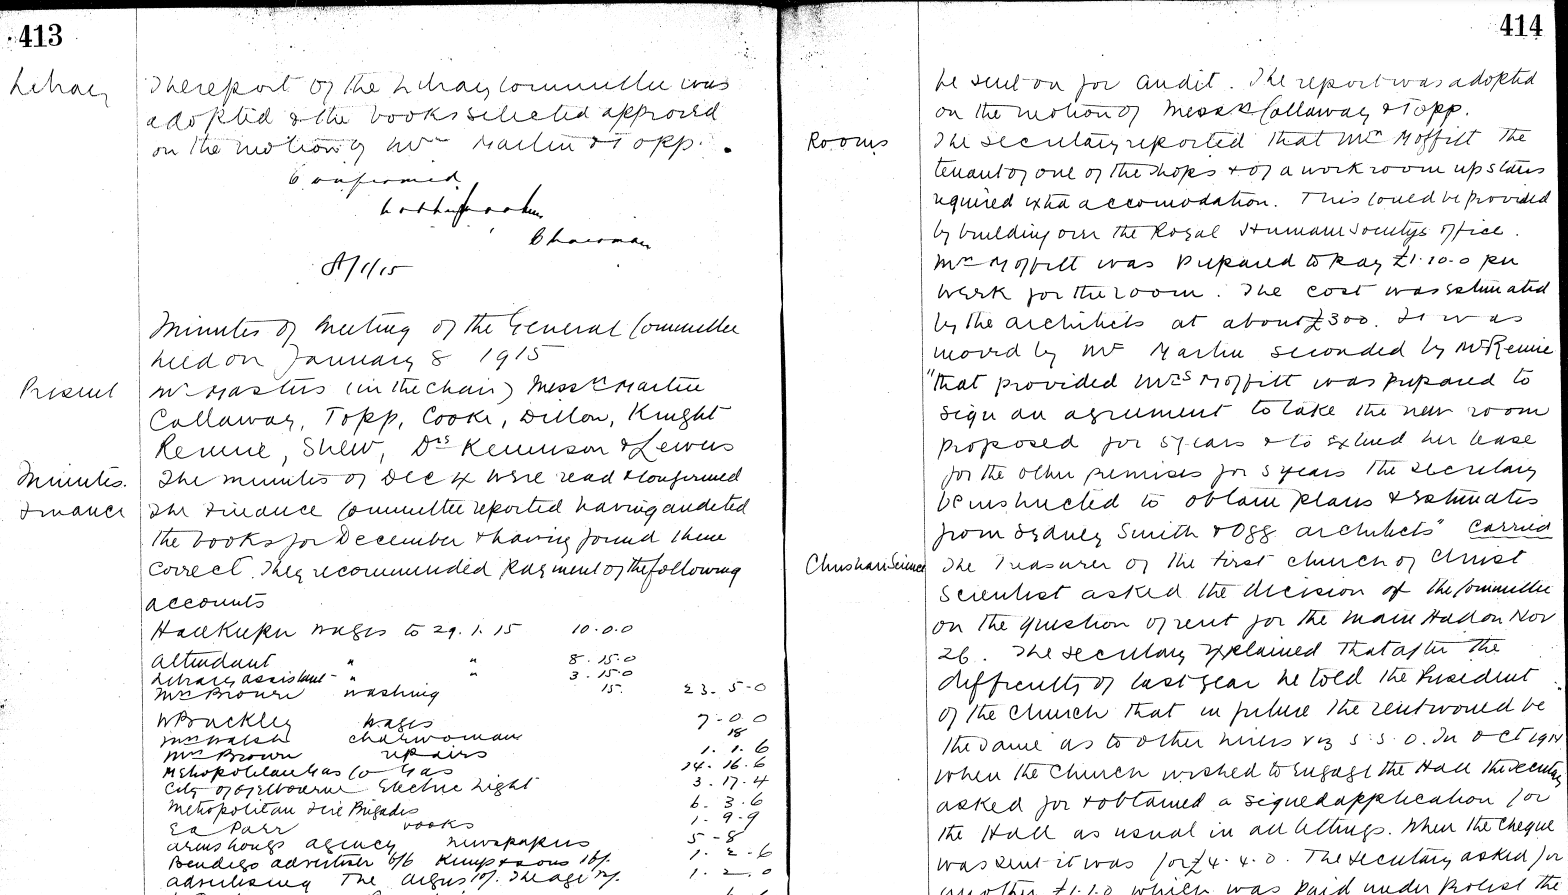 413
Library
The report of the Library Committee was
adopted & the books selected approved
on the motion of Mrss Martin & Topp.
Confirmed
Chairman
8/1/15
Minutes of Meeting of the General Committee
held on January 8 1915
Present
Mr Masters (in the chair) Messrs Martin
Callaway, Topp, Cooke, Dillon, Knight
Rennie, Shew, Drs Kennison & Lewers
Minutes.
The minutes of Dec 4 were read & confirmed
Finance
The Finance Committee reported having audited
the books for December & having found them
correct. They recommended payment of the following
accounts
Hall Keeper wages to 29.1.15 10.0.0
Attendant " " 8.15.0
Library assistant " " 3.15.0
Mrs Brown washing 15. 23.5-0
W Brackley wages 7-0 0
Mrs Walsh charwoman 18
Mrs Brown repairs 1.1.6
Metropolitan Gas Co Gas 14.16.6
City of Melbourne Electric Light 3.17.4
Metropolitan Fire Brigades 6.3.6
Ed Parr books 1.9.9
Armstrongs agency newspapers 5-8
Bendigo advertiser 6/6 Kemp & sons 16/. 1.2.6
advertising The Argus 10/. The age 12/. 1.2.0
414
be sent on for audit. The report was adopted
on the motion of Messrs Callaway & Topp.
Rooms
The secretary reported that Mrs Moffitt the
tenant of one of the shops & of a work room upstairs
required extra accomodation. This could be provided
by building over the Royal Humane Societys office.
Mrs Moffitt was prepared to pay £1.10.0 per
week for the room. The cost was estimated
by the architects at about £300. It was
moved by Mr Martin seconded by Mr Rennie
"that provided Mrs Moffitt was prepared to
sign an agreement to take the new room
proposed for 5 years & to extend her lease
for the other premises for 5 years the secretary
be instructed to obtain plans & estimates
from Sydney Smith & Ogg architects" Carried
Christian Science
The Treasurer of the First Church of Christ
Scientist asked the decision of the Committee
on the question of rent for the main Hall on Nov
26. The secretary explained that after the
difficulty of last year he told the President
of the Church that in future the rent would be
the same as to other hirers viz 5.5.0. In Oct 1914
when the Church wished to engage the Hall the secretary
asked for & obtained a signed application for
the Hall as usual in all lettings. When the cheque
was sent it was for £4.4.0. The secretary asked for
another £1.1.0 which was paid under protest the